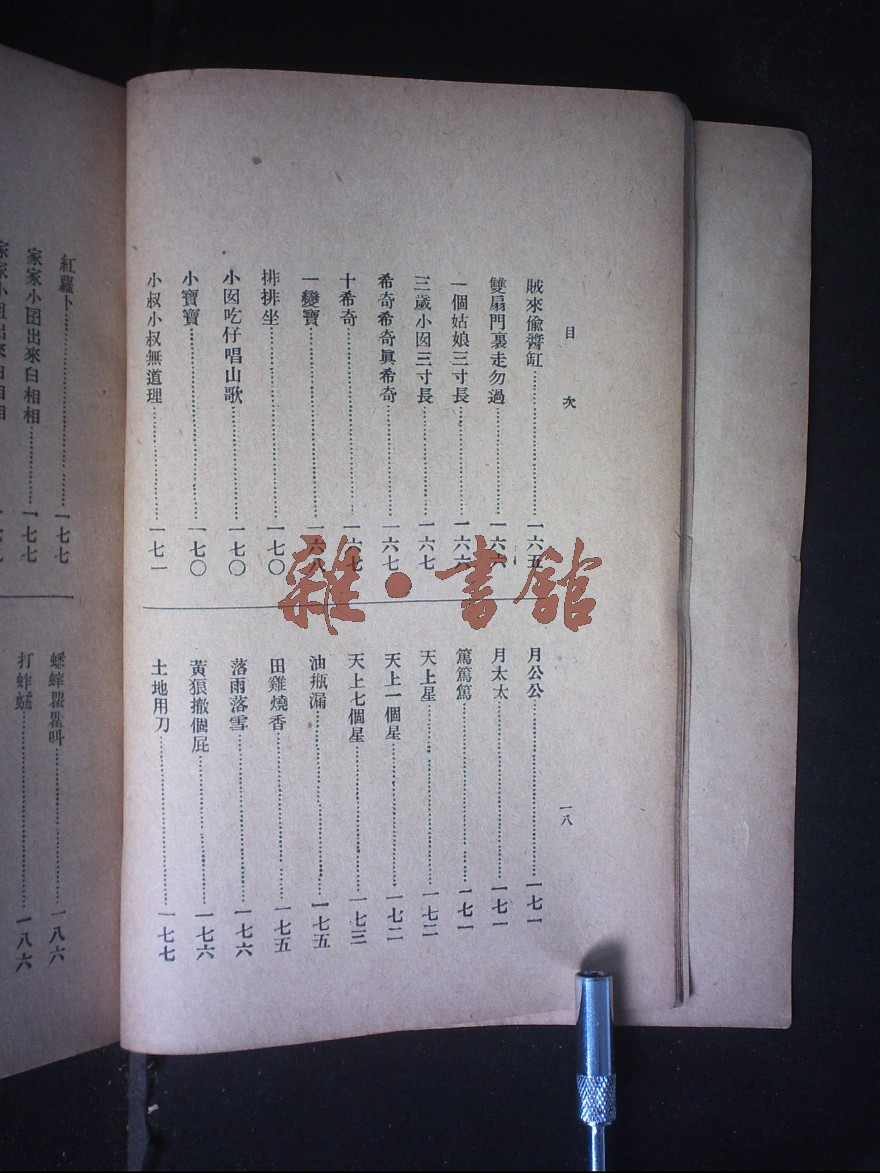 目次
一八
賊來偸醬缸……一六五
雙扇門裏走勿過……一六六
一個姑娘三寸長……一六六
三歲小囡三寸長……一六七
希奇希奇眞希奇……一六七
十希奇……一六七
一變寶……一六八
排排坐……一七〇
小囡吃仔唱山歌……一七〇
小寶寶……一七〇
小叔小叔無道理……一七一
月公公……一七一
月太太……一七一
篤篤篤……一七一
天上星……一七二
天上一個星……一七二
天上七個星……一七三
油瓶漏……一七五
田雞燒香……一七五
落雨落雪……一七六
黃狼撤個屁……一七六
土地用刀……一七七
紅蘿卜……一七七
家家小囝出來白相相……一七七
蟋蟀瞿瞿叫……一八六
打蚱蜢……一八六
雜·書館